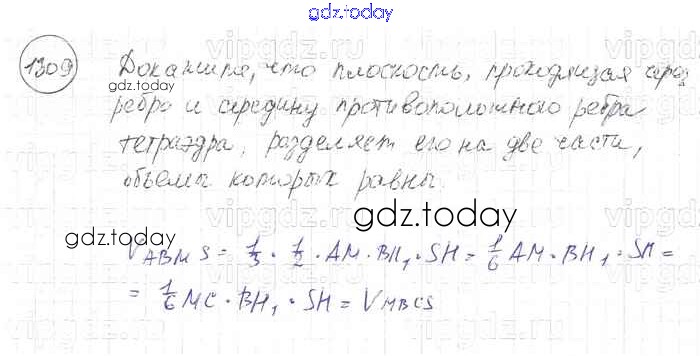 gdz.today
1309 Докажите, что плоскость, проходящая через
ребро и середину противоположного ребра
тетраэдра, разделяет его на две части,
объемы которых равны.
gdz.today
gdz.today
gdz.today
V_ABMS = 1/3 · 1/2 · AM · BH₁ · SH = 1/6 AM · BH₁ · SH =
= 1/6 MC · BH₁ · SH = V_MBCS